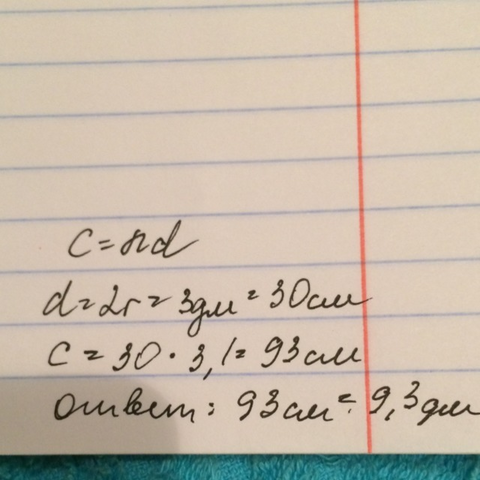 C=πd
d=2r=3дм=30см
C=30·3,1=93см
ответ: 93см=9,3дм